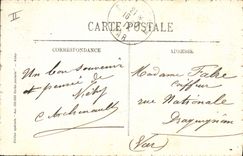 II
CARTE POSTALE
CORRESPONDANCE
ADRESSE
Un bon souvenir
et pensée de
C. Archenault
Madame Fabre
Coiffeur
rue Nationale
Draguignan
(Var)